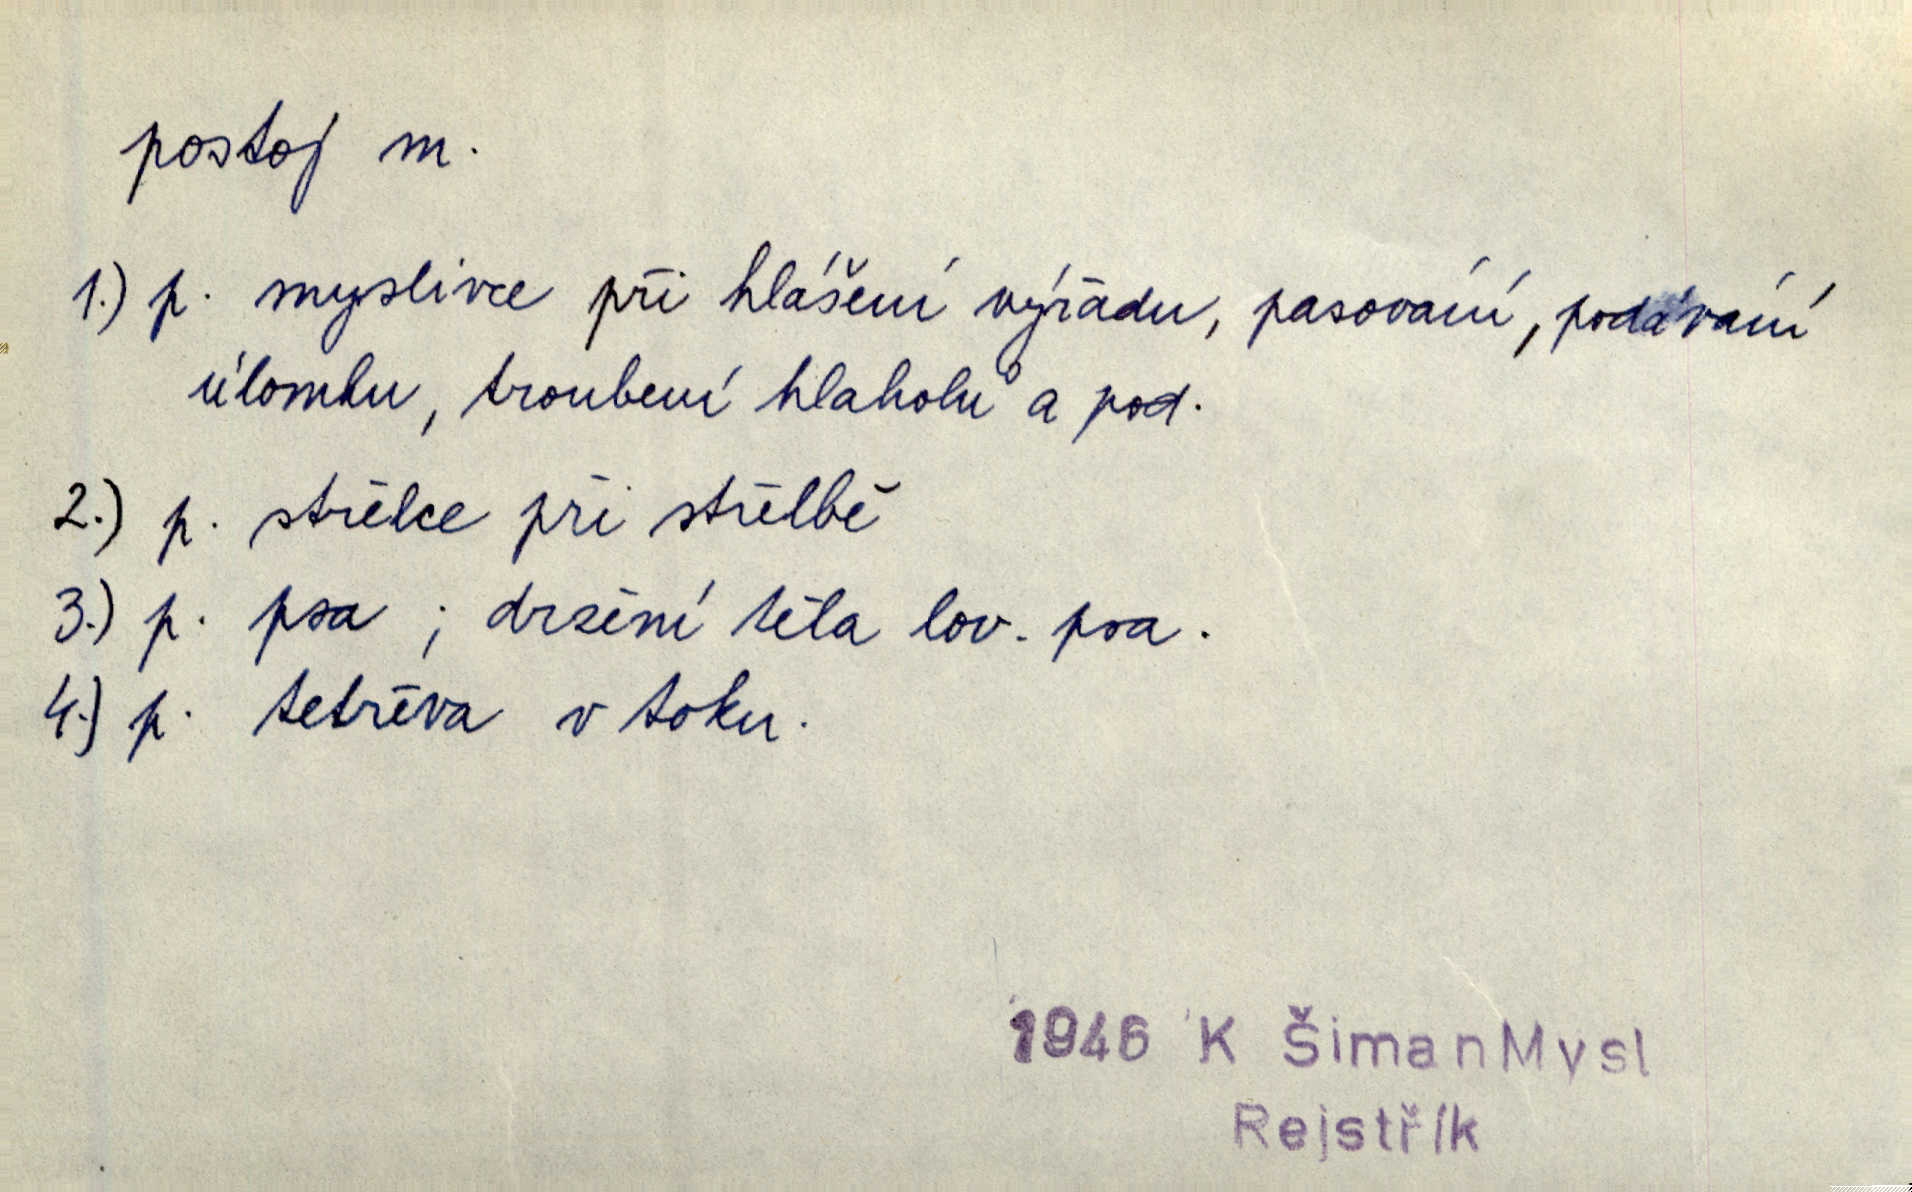 postoj m.
1.) p. myslivce při hlášení výřadu, pasování, podávání
úlomku, troubení hlaholů a pod.
2.) p. střelce při střelbě
3.) p. psa ; držení těla lov. psa.
4.) p. tetřeva v toku.
1946 K ŠimanMysl
Rejstřík